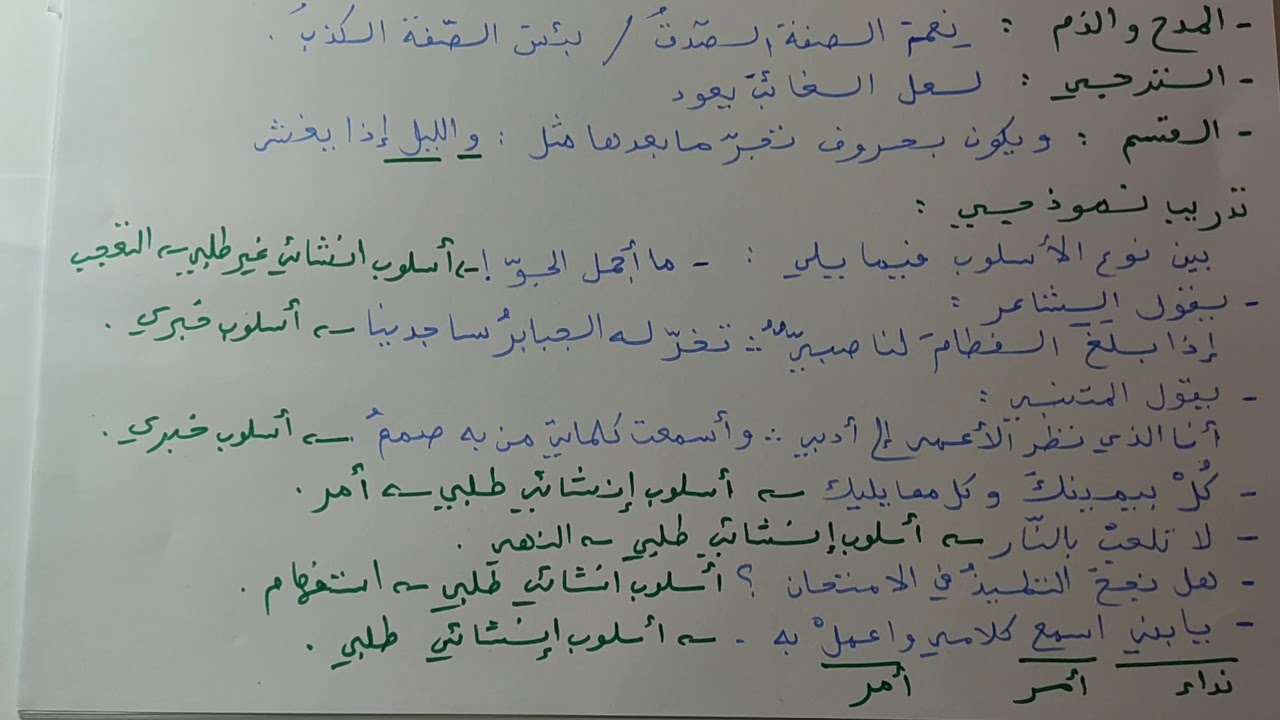 - المدح والذم : نعمَ الصفة الصّدقُ / بئسَ الصّفة الكذبُ .
- الترجي : لعل الغائبَ يعود
- القسم : ويكون بحروف تجرّ ما بعدها مثل : و الليل إذا يغشى
تدريب نموذجي :
بين نوع الأسلوب فيما يلي : - ما أجمل الجوّ ! ← أسلوب انشائي غير طلبي ← التعجب
- يقول الشاعر :
إذا بلغَ الفطامَ لنا صبيٌّ :: تخرّ له الجبابرُ ساجدينا ← أسلوب خبري .
- يقول المتنبي :
أنا الذي نظر الأعمى إلى أدبي :: وأسمعت كلماتي من به صممُ ← أسلوب خبري .
- كُلْ بيمينكَ وكل مما يليك ← أسلوب إنشائي طلبي ← أمر .
- لا تلعبْ بالنّار ← أسلوب إنشائي طلبي ← النهي .
- هل نجحَ التلميذُ في الامتحان ؟ أسلوب انشائي طلبي ← استفهام .
- يا بني اسمع كلامي واعملْ به . ← أسلوب إنشائي طلبي .
نداء أمر أمر